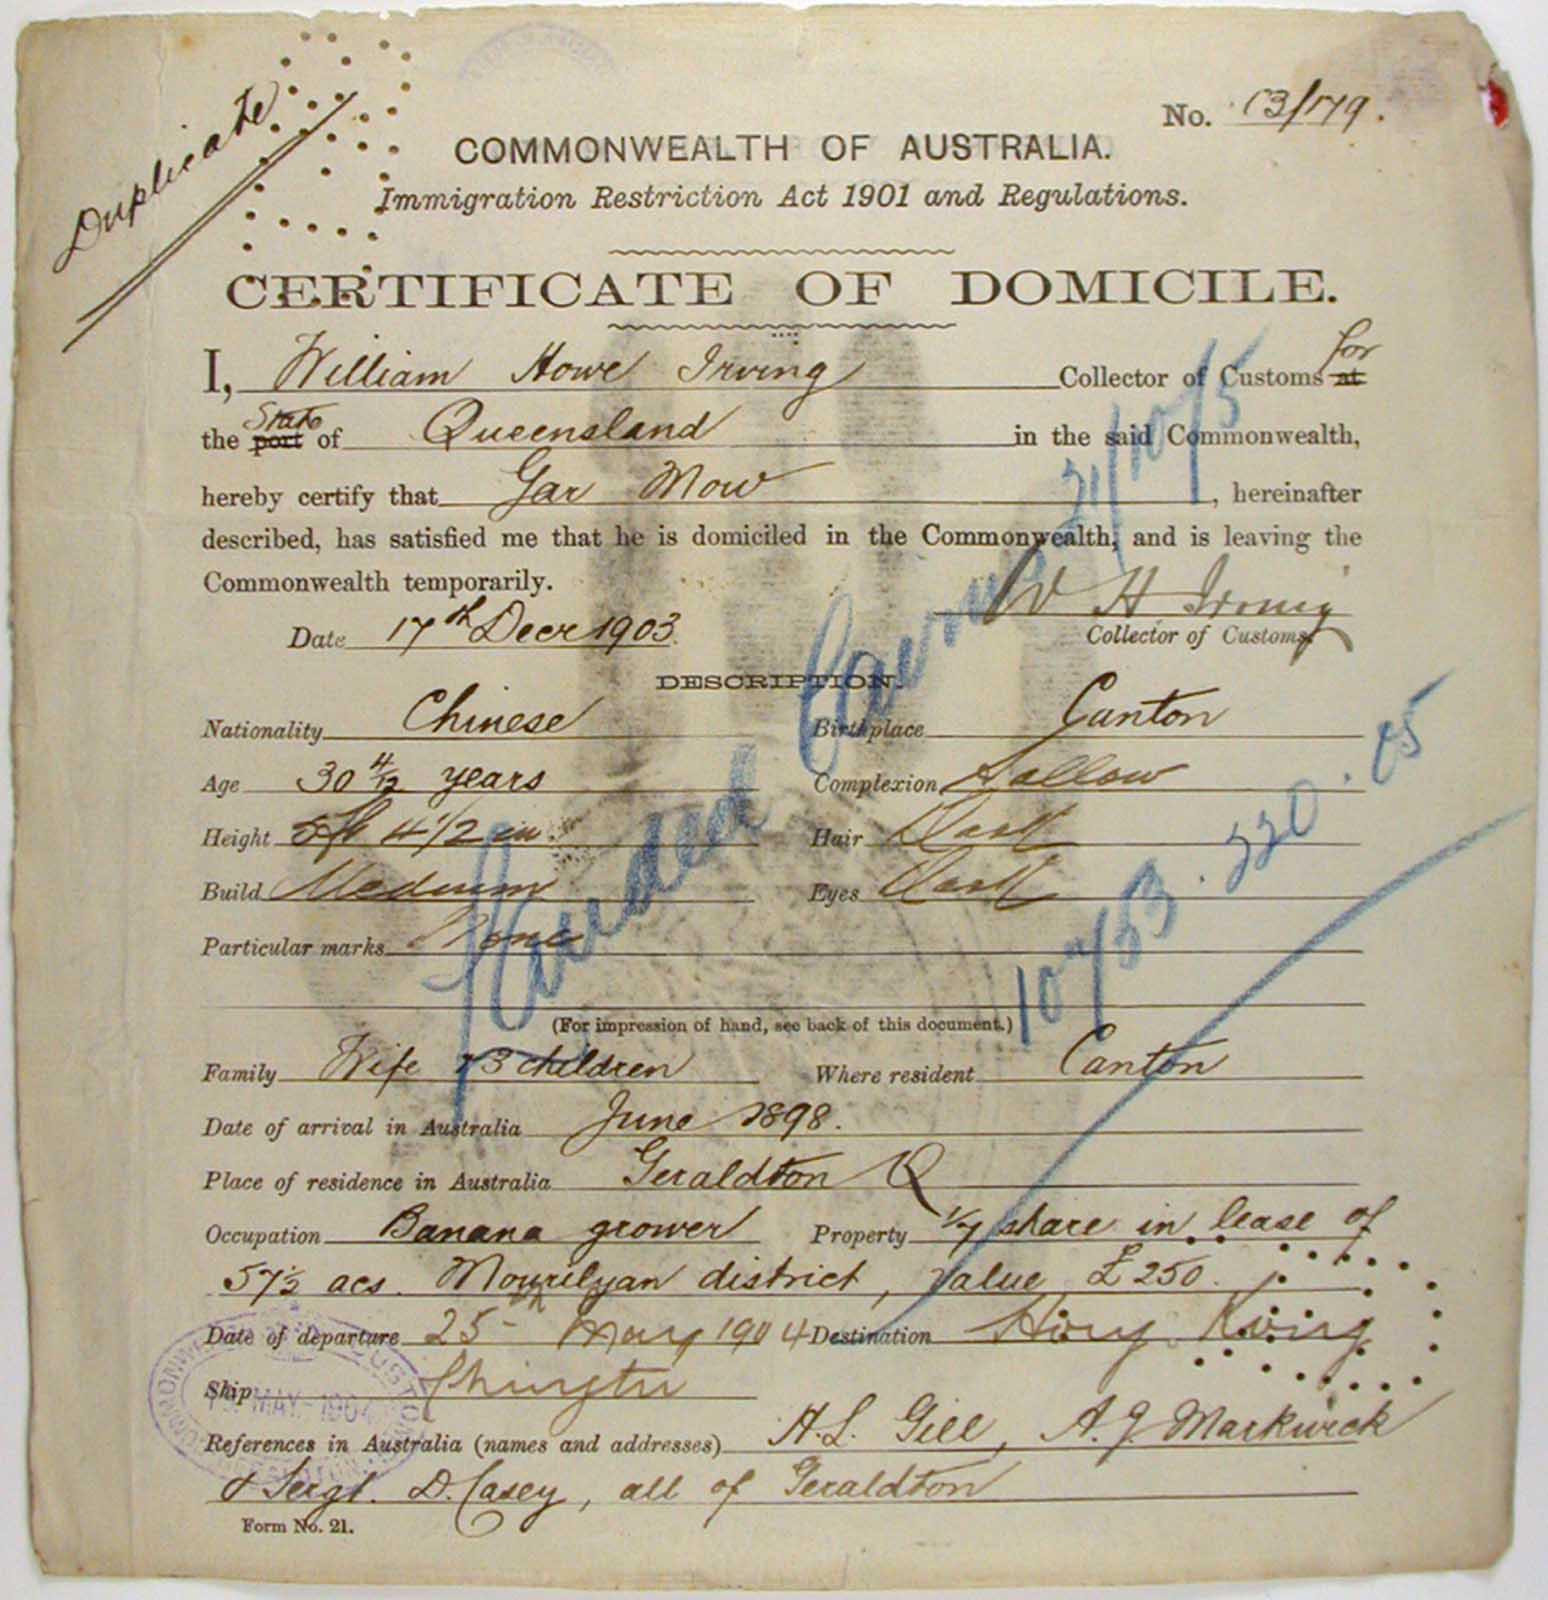 Duplicate
No. 03/179.
COMMONWEALTH OF AUSTRALIA.
Immigration Restriction Act 1901 and Regulations.
CERTIFICATE OF DOMICILE.
I, William Howe Irving Collector of Customs at for
the port State of Queensland in the said Commonwealth,
hereby certify that Gar Mow, hereinafter
described, has satisfied me that he is domiciled in the Commonwealth, and is leaving the
Commonwealth temporarily.
W H Irving
Date 17th Decr 1903. Collector of Customs.
DESCRIPTION.
Nationality Chinese Birthplace Canton
Age 30 4/12 years Complexion Sallow
Height 5ft 4 1/2 in. Hair Dark
Build Medium Eyes Dark
Particular marks None
Landed Cairns 21/10/5
(For impression of hand, see back of this document.)
Family Wife & 3 children Where resident Canton
Date of arrival in Australia June 1898.
Place of residence in Australia Geraldton Q
Occupation Banana grower Property 1/7 share in lease of
57½ acs. Mourilyan district, value £250.
Date of departure 25th May 1904 Destination Hong Kong
Ship Chingtu
MAY 1904
References in Australia (names and addresses) H. L. Gill, A. J. Markwick
& Sergt. D. Casey, all of Geraldton
Form No. 21.